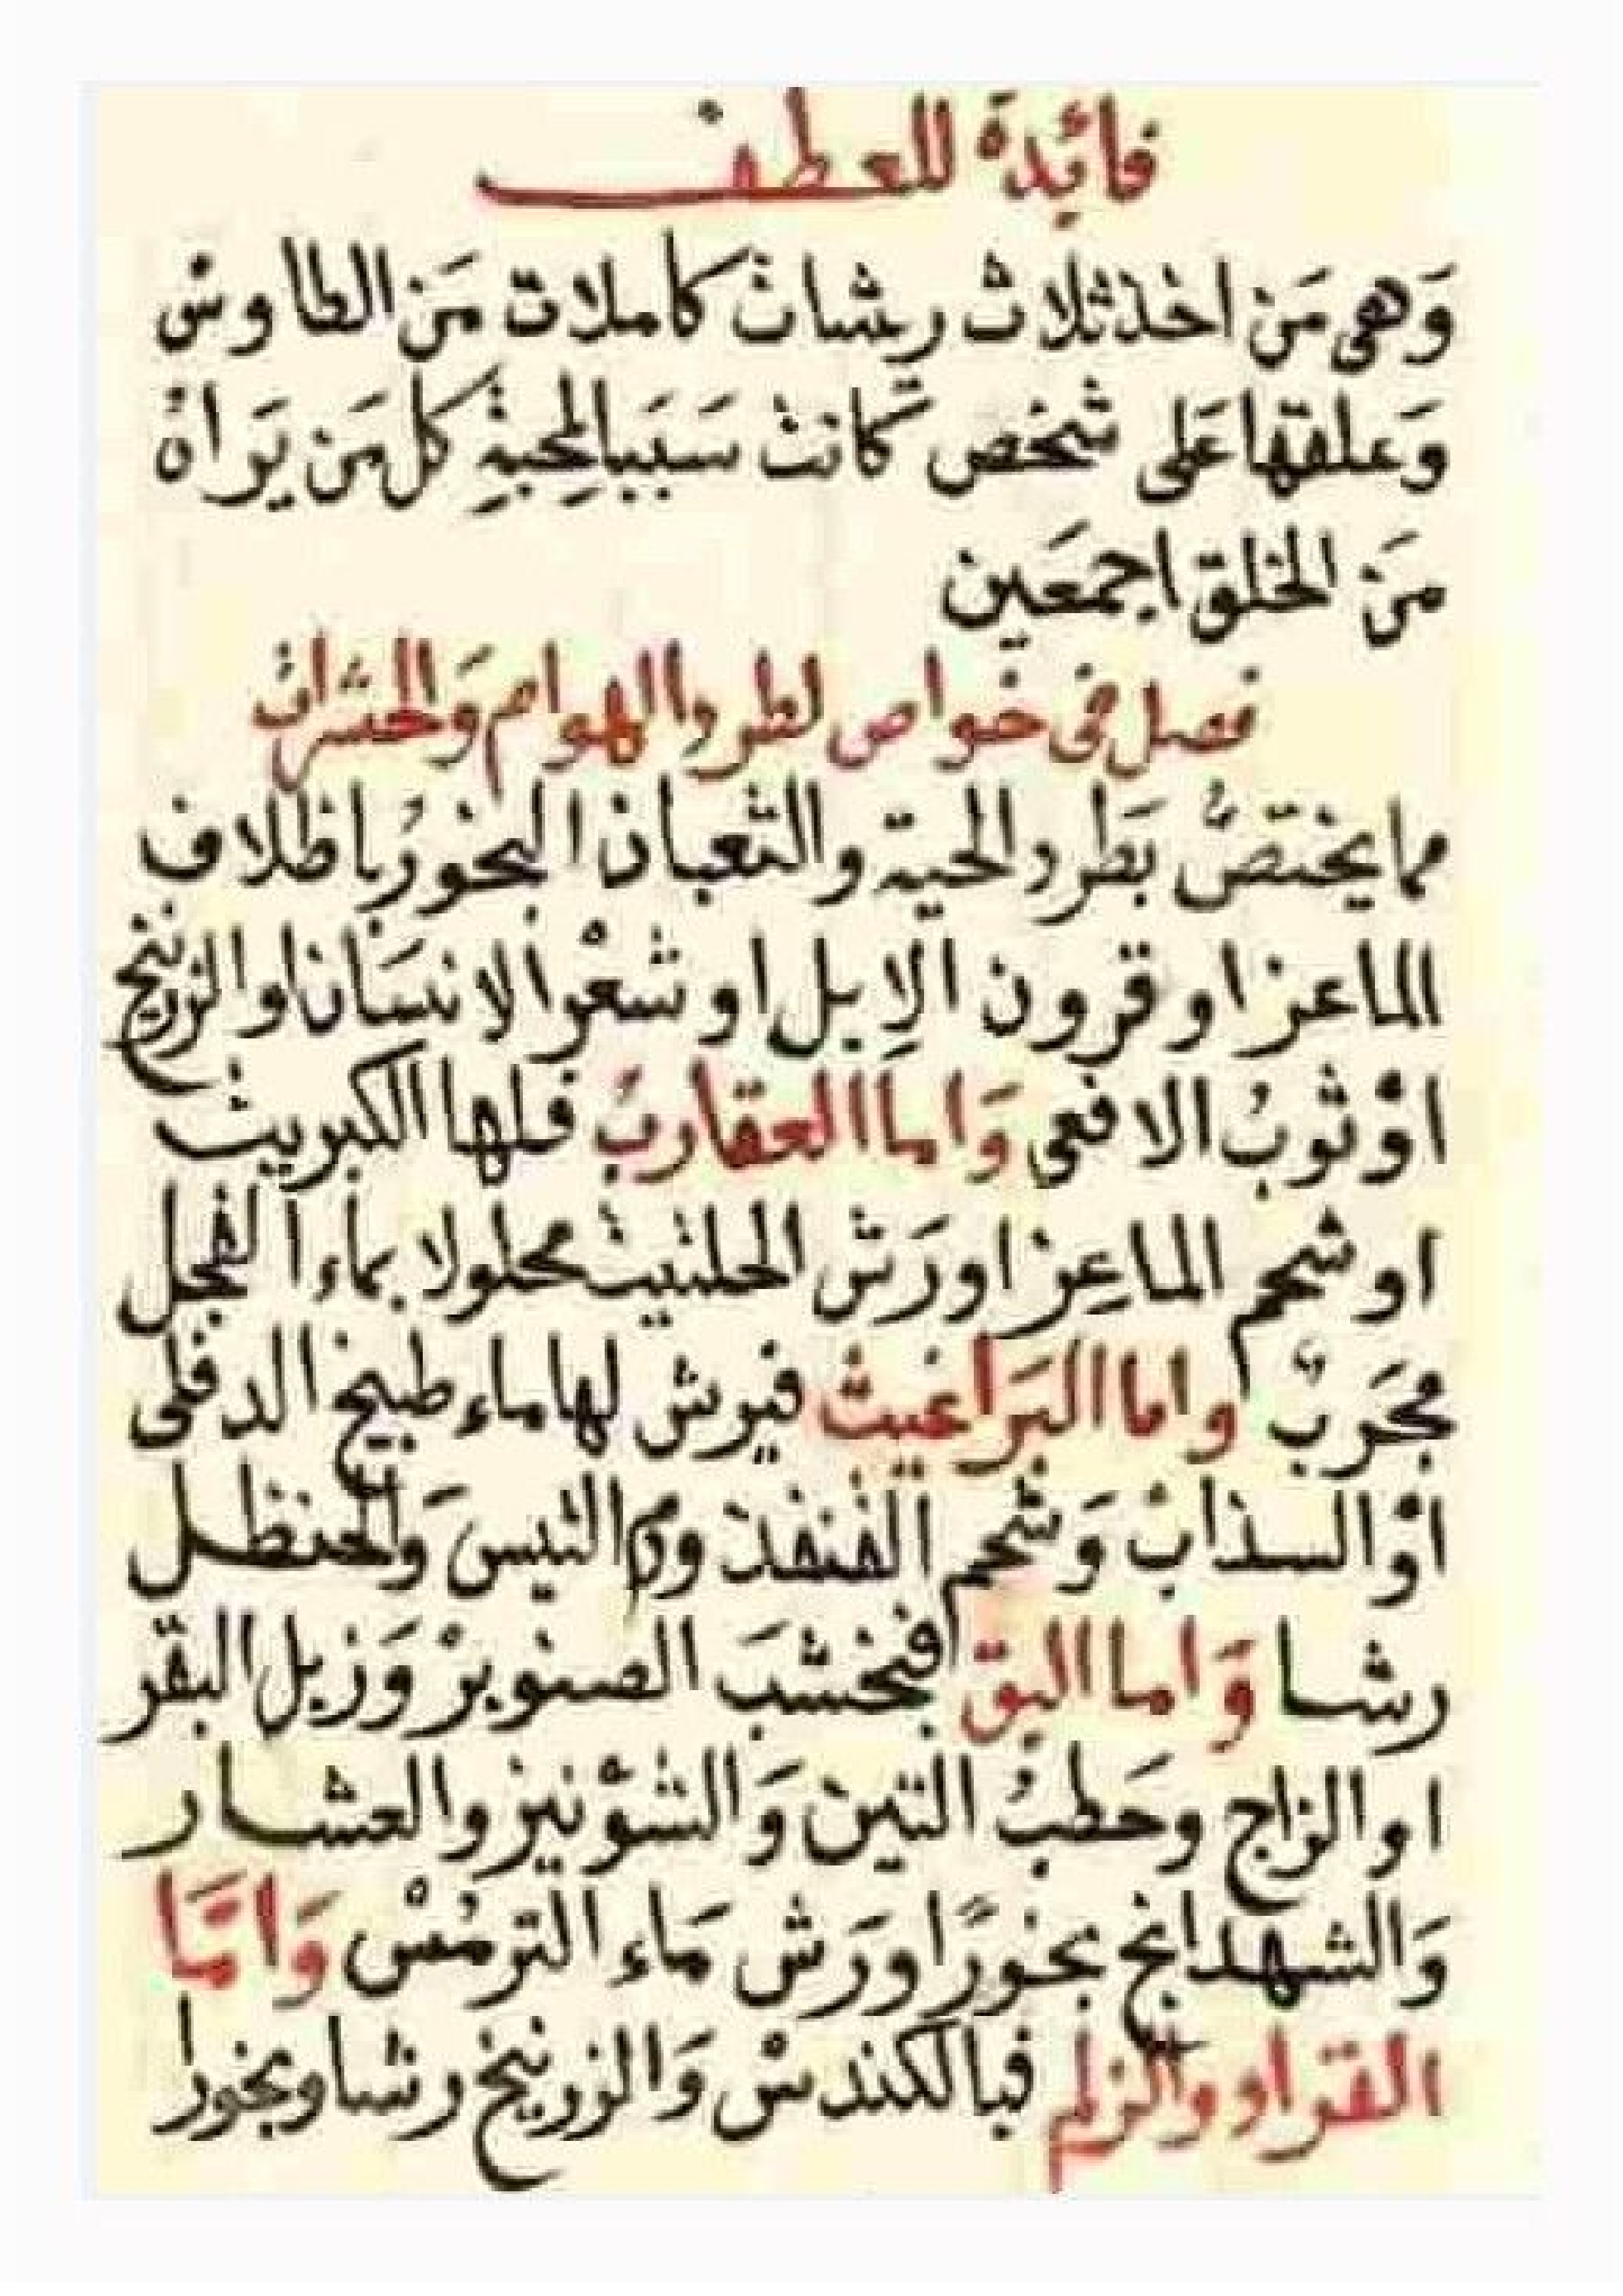 فائدة للعطف
وَهى مَن اخذ ثلاث رشات كاملات مَن الطاوس
وَعلقها عَلى شخص كانت سَبَبا لِمحبةِ كل مَن يَراهُ
مَن الخلق اجمعَين
فصل فى خواص لطرد الهوام وَالحشرات
مما يختصُّ بَطرد الحية والثعبان البخورُ باظلاف
الماعز او قرون الاِبل او شعْر الانسَان او الزرنيخ
اوْ ثوبُ الافعى وَاما العقاربُ فلها الكبريت
او شحم الماعِز او رَش الحلتيت محلولا بماء الفجل
مجَربٌ واما البَراغيث فيرش لها ماء طبيخ الدفلى
اوْ السذابْ وَشحم القنفذ ودم التيس وَالحنظل
رشا وَاما البق فبخشبَ الصنوبرْ وَزبل البقر
او الزاج وحَطبُ التين وَالشوْنيز والعشار
وَالشهدانج بخورًا ورَش مَاء الترمُسْ وَامَّا
القراد والزلم فبالكندسْ وَالزرنيخ رشا وبخورا